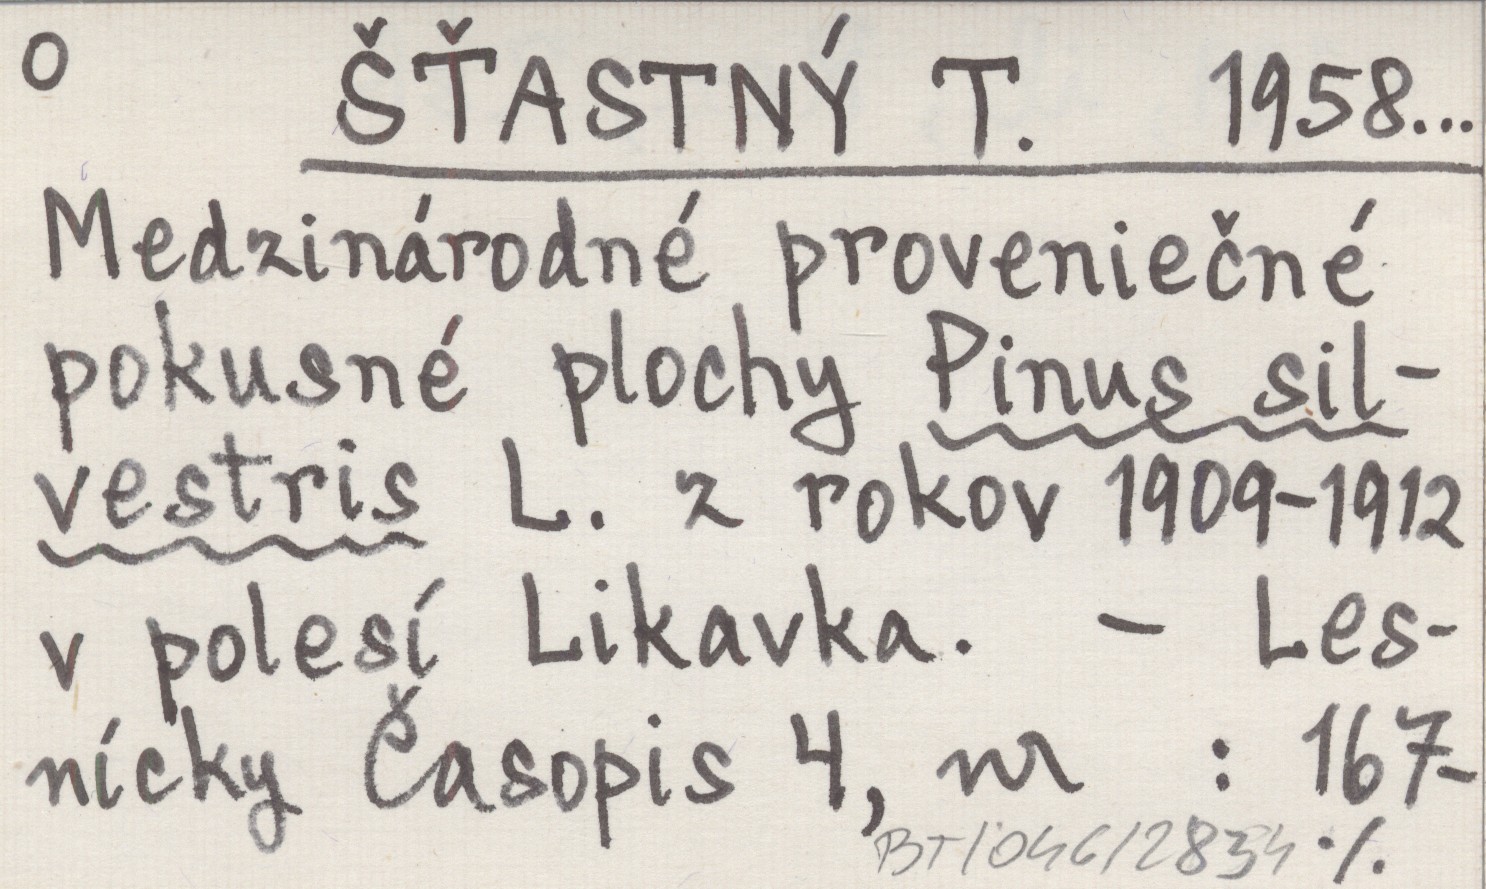 O ŠŤASTNÝ T. 1958...
Medzinárodné proveniečné
pokusné plochy Pinus sil-
vestris L. z rokov 1909-1912
v polesí Likavka. - Les-
nícky Časopis 4, nr : 167-
BT/046/2834 ·/.